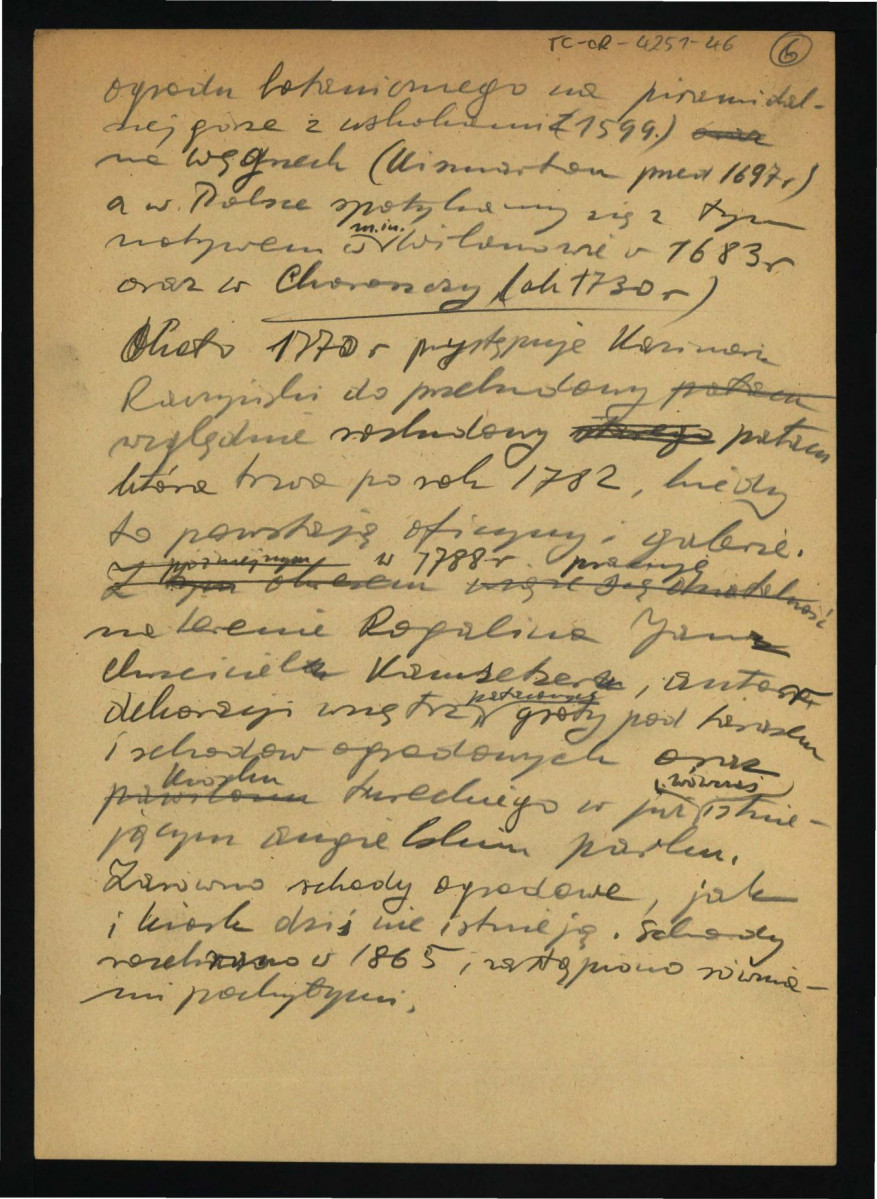 TC-OR-4251-46 6
ogrodu botanicznego na piramidal-
nej górze z uskokami (1599.) oraz
na Węgrzech (Kismarton przed 1697r)
a w Polsce spotykamy się z tym
motywem w m.in. Wilanowie v 1683r
oraz w Choroszczy (ok 1730r)
Około 1770r przystępuje Kazimierz
Raczyński do przebudowy pałacu
względnie rozbudowy starego pałacu
która trwa po rok 1782, kiedy
to powstają oficyny i galerie.
późniejszym w 1788r. pracuje
Z tym okresem wiąże się działalność
na terenie Rogalina Jana
Chrzciciela Kamsetzera, autora
dekoracji wnętrz pałacowych groty pod tarasem
i schodów ogrodowych oraz
kiosku (również)
pawilonu tureckiego w już istnie-
jącym angielskim parku.
Zarówno schody ogrodowe, jak
i kiosk dziś nie istnieją. Schody
rozebrano w 1865 i zastąpiono równia-
mi pochyłymi.